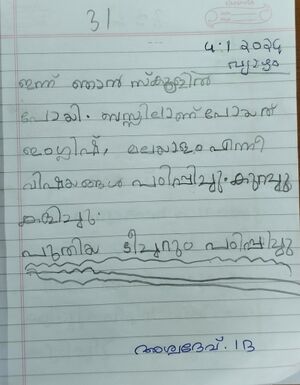 31
4.1 2024
വ്യാഴം
ഇന്ന് ഞാൻ സ്കൂളിൽ
പോയി. ബസ്സിലാണ് പോയത്
ഇംഗ്ലീഷ്, മലയാളം എന്നീ
വിഷയങ്ങൾ പഠിപ്പിച്ചു. കുറച്ചു
കളിച്ചു.
പുതിയ ടീച്ചറും പഠിപ്പിച്ചു
അശ്വദേവ്. 1B